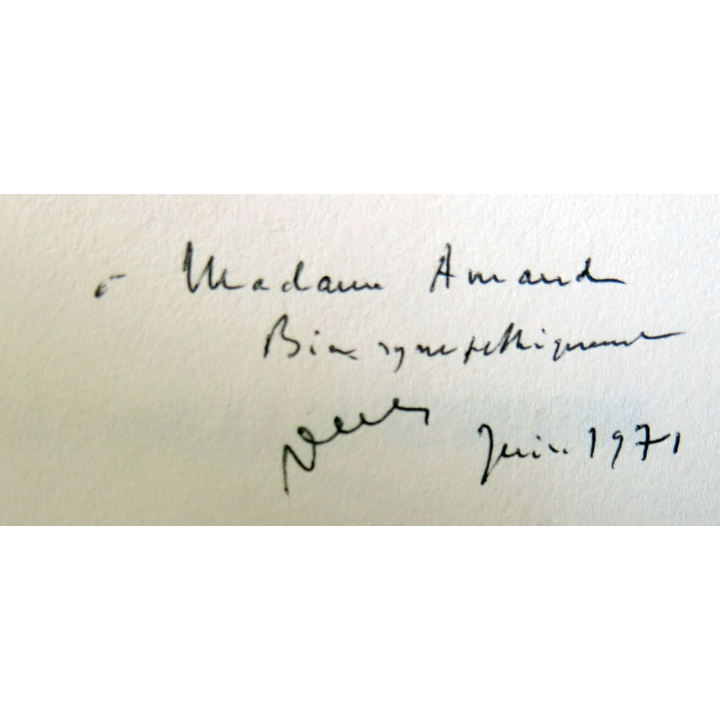 à Madame Amand
Bien sympathiquement
Juin 1971